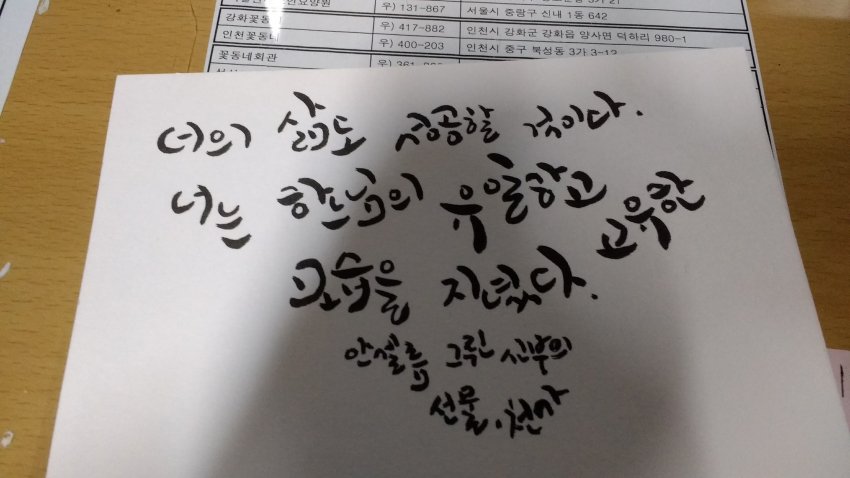 우) 131-867 서울시 중랑구 신내 1동 642
강화꽃동네 우) 417-882 인천시 강화군 강화읍 양사면 덕하리 980-1
인천꽃동네 우) 400-203 인천시 중구 북성동 3가 3-12
꽃동네회관
너의 삶도 성공할 것이다.
너는 하느님의 유일하고 고유한
모습을 지녔다.
안셀름 그륀 신부의
선물.